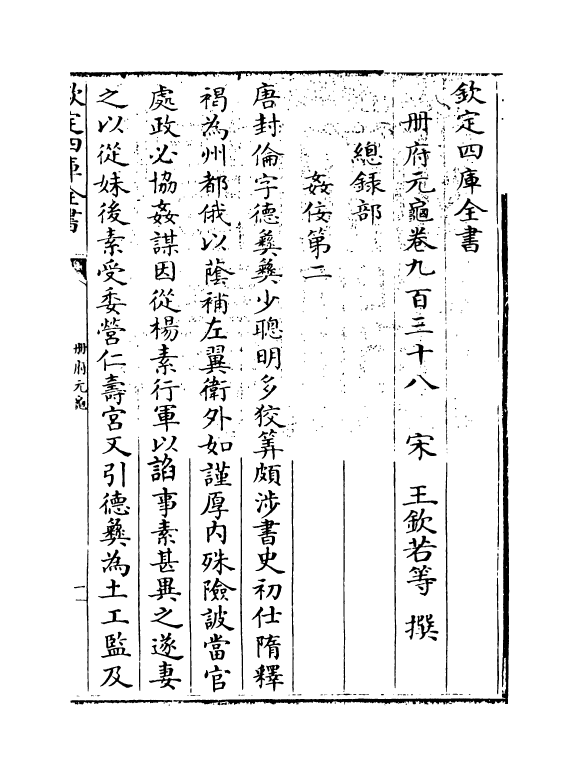 欽定四庫全書
冊府元龜卷九百三十八　宋　王欽若等　撰
總錄部
姦佞第二
唐封倫字德彝彝少聰明多狡筭頗涉書史初仕隋釋
褐為州都俄以蔭補左翼衛外如謹厚内殊險詖當官
處政必協姦謀因從楊素行軍以諂事素甚異之遂妻
之以從妹後素受委營仁壽宮又引德彝為土工監及
欽定四庫全書
冊府元龜
一